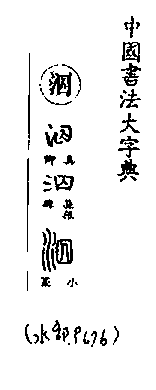 中國書法大字典
泗
泗
泗
泗
小篆
(水部,P676)